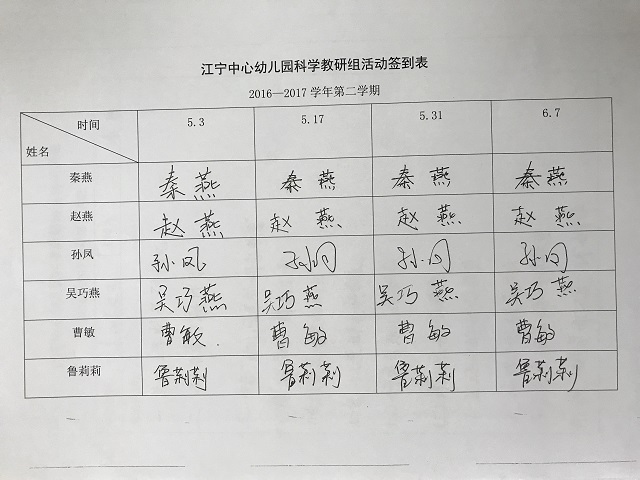 江宁中心幼儿园科学教研组活动签到表
2016—2017 学年第二学期
时间 5.3 5.17 5.31 6.7
姓名
秦燕 秦燕 秦燕 秦燕 秦燕
赵燕 赵燕 赵燕 赵燕 赵燕
孙凤 孙凤 孙凤 孙凤 孙凤
吴巧燕 吴巧燕 吴巧燕 吴巧燕 吴巧燕
曹敏 曹敏 曹敏 曹敏 曹敏
鲁莉莉 鲁莉莉 鲁莉莉 鲁莉莉 鲁莉莉